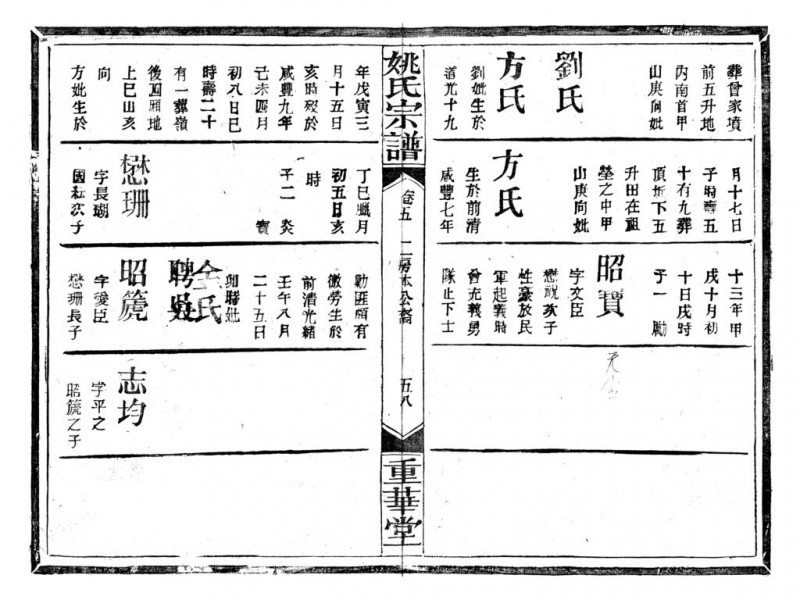 葬曾家墳
前五升地
內南首甲
山庚向妣
劉氏
方氏
劉妣生於
道光十九
月十七日
子時壽五
十有九葬
頂坵下五
升田在祖
塋之中甲
山庚向妣
方氏
生於前清
咸豐七年
十三年甲
戌十月初
十日戌時
子一 勵
昭寶
字文臣
次子
性豪放民
軍起義時
曾充義勇
隊止下士
姚氏宗譜
卷五
二房本公裔
五八
重華堂
年戊寅三
月十五日
亥時歿於
咸豐九年
己未四月
初八日巳
時壽二十
有一葬嶺
後四厢地
上巳山亥
向
方妣生於
丁巳臘月
初五日亥
時
子二 炎
寶
懋珊
字長瑚
國紜次子
勦匪頗有
微勞生於
前清光緒
壬午八月
二十五日
聘妣
全氏
聘吳
昭篪
字愛臣
懋珊長子
志均
字平之
昭篪之子